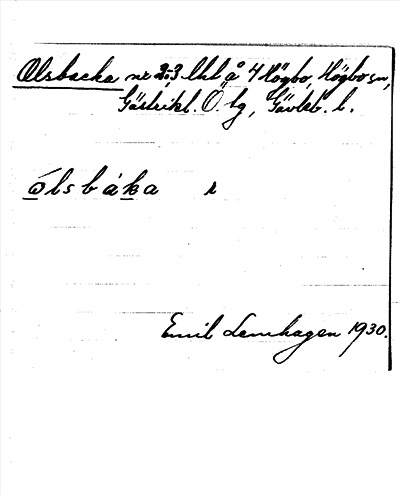 Olsbacka nr 2:3 lht å 4 Högbo, Högbo sn,
Gästrikl. Ö. tg, Gävleb. l.
ólsbáka r
Emil Lemhagen 1930.